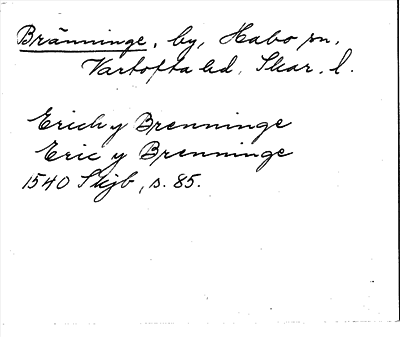 Bränninge, by, Habo sn.
Vartofta hd, Skar. l.
Erich y Brenninge
Eric y Brenninge
1540 Skjb, s. 85.